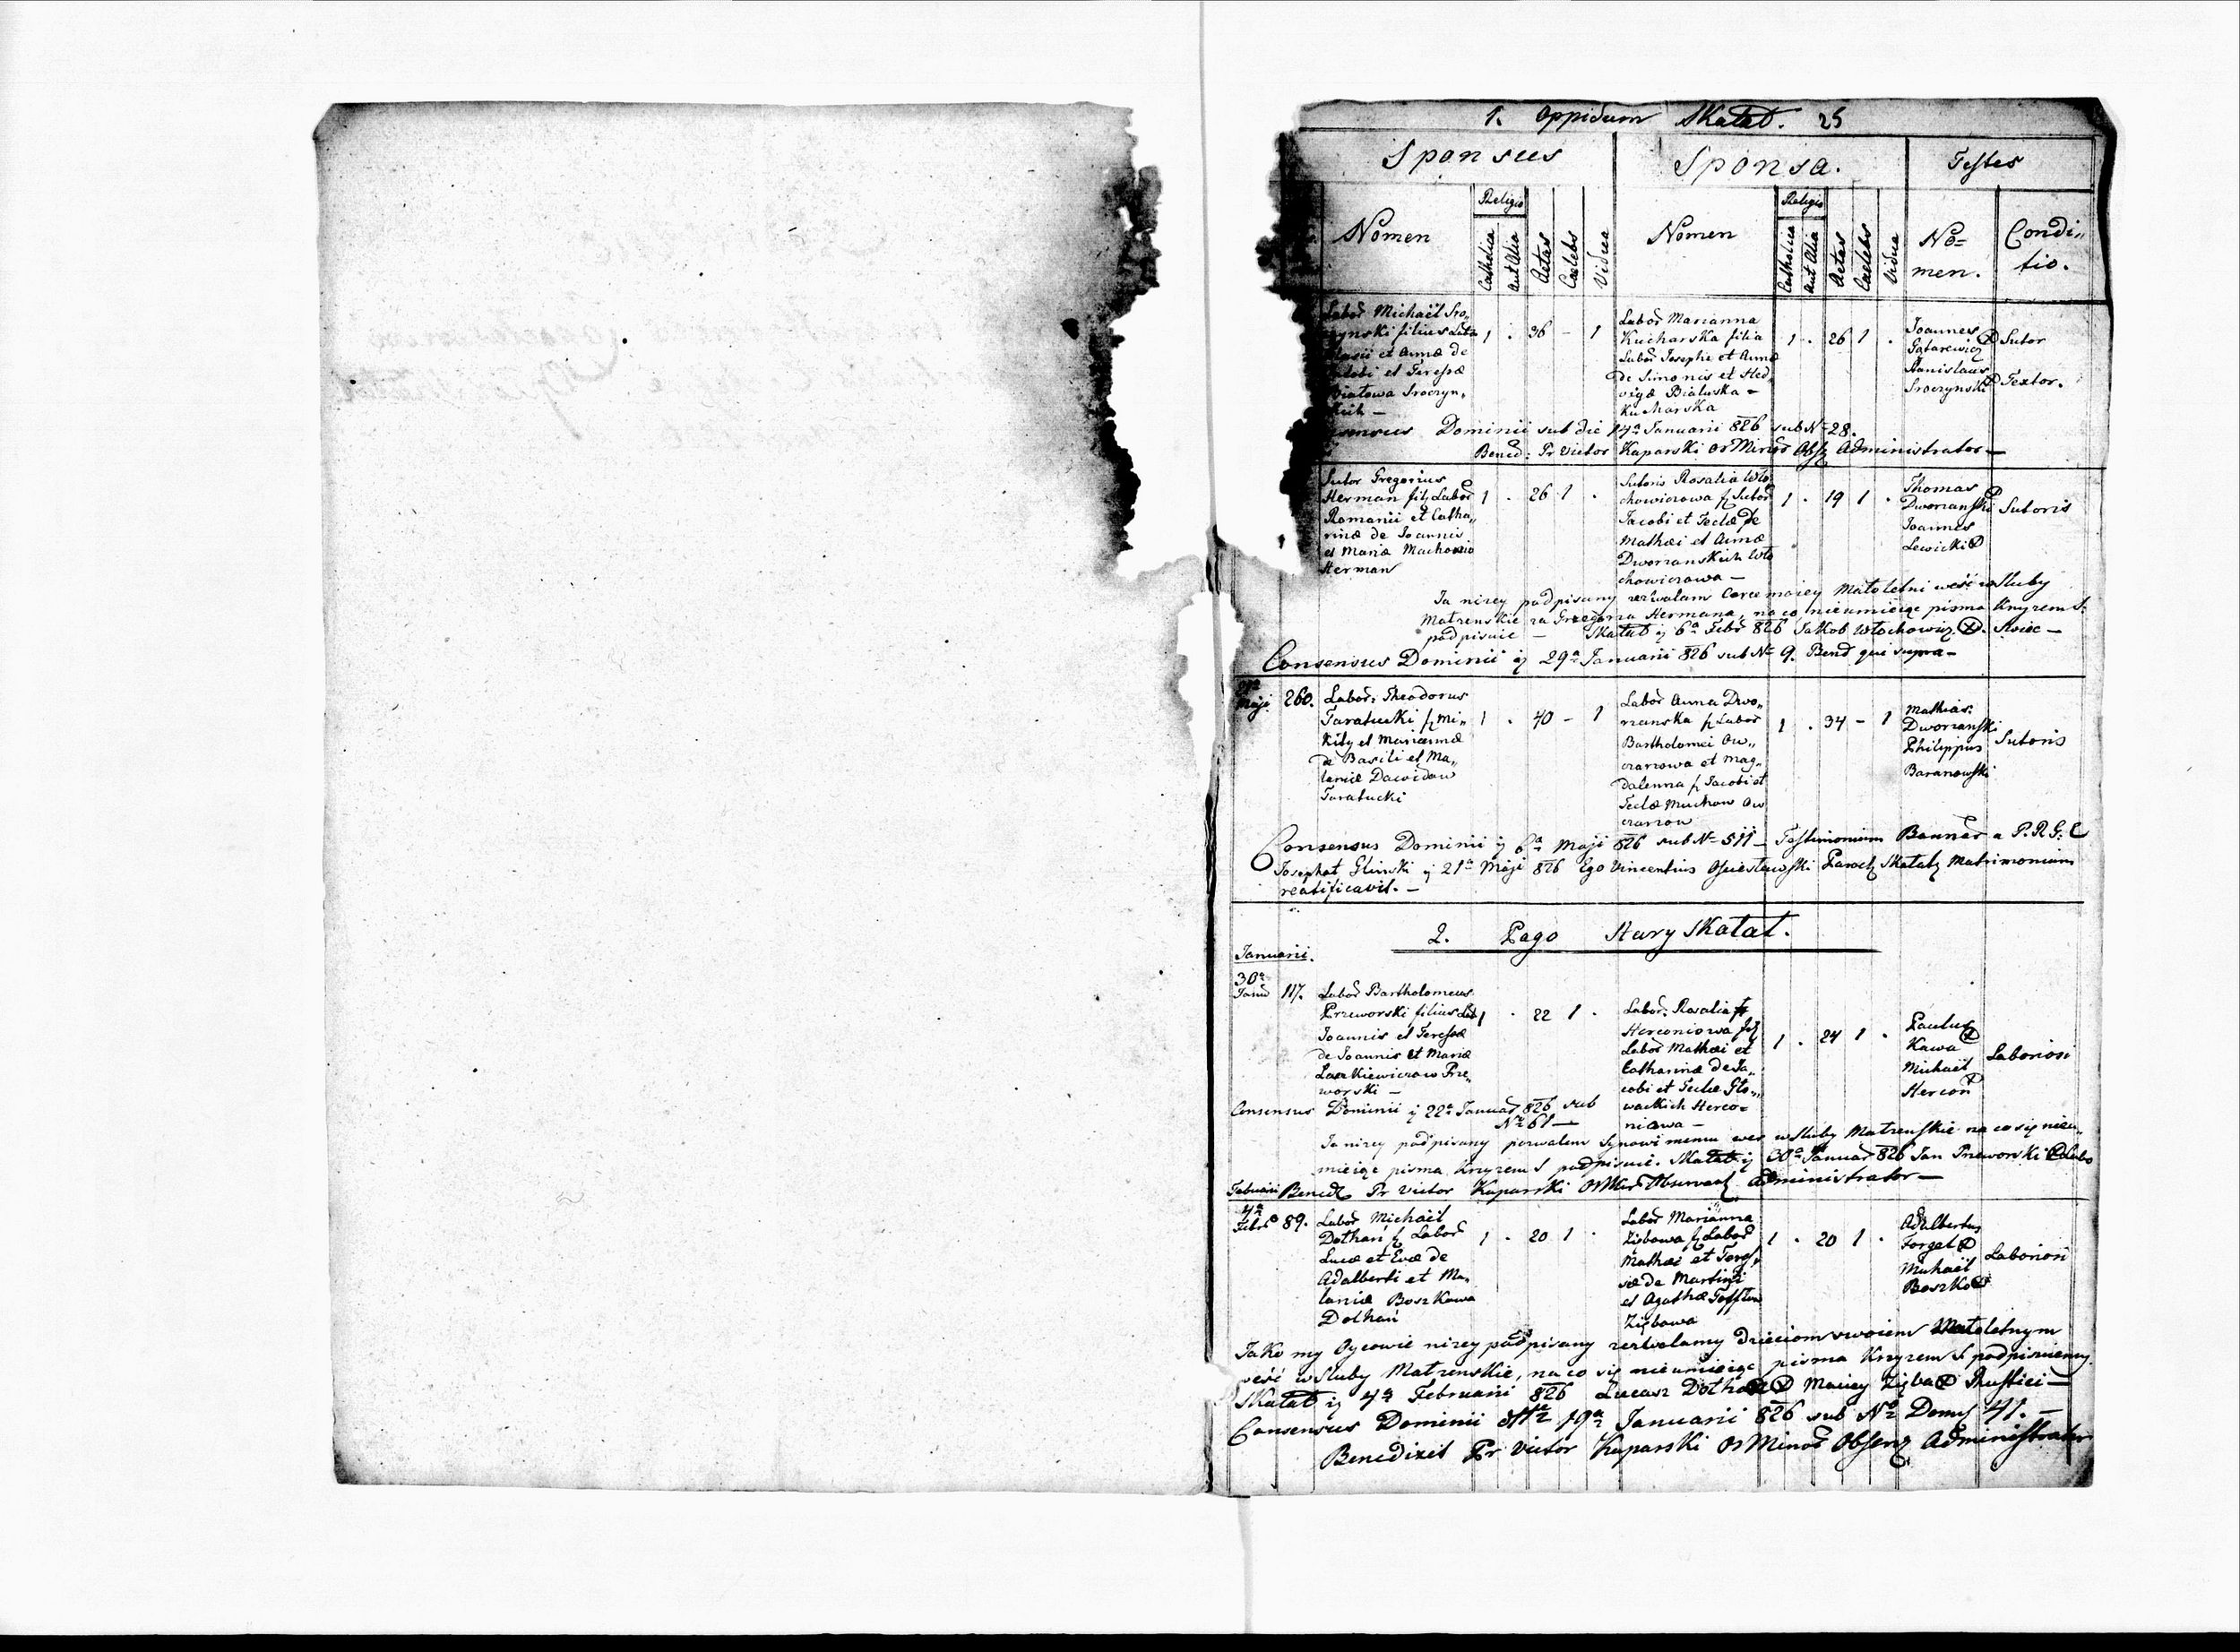 1. Oppidum Skałat. 25
Sponsus Sponsa. Testes
Religio Religio
Nomen Catholica Aut Alia Aetas Caelebs Vidua Nomen Catholica Aut Alia Aetas Caelebs Vidua No= men. Condi„ tio.
Labor Michaël Sro„
zynski filius Labo
et Annæ de
et Teressæ
Sroczyn„
skich —
1 . 36 - 1
Labor Marianna
Kucharska filia
Labor Josephi et Annæ
de Simonis et Hed„
vigæ Bialuska =
Kucharska
1 . 26 1 .
Joannes
Gątarewicz
Stanislaus
Sroczynski
Sutor
Textor.
Consensus Dominii sub die 14a Januarii 826 sub No 28.
Bened: Pr Victor Kaparski Or Minor Obsz Administrator —
Sutor Gregorius
Herman filz Labor
Romanii et Catha„
rinæ de Joannis
et Mariæ
Herman
1 . 26 1 .
Sutoris Rosalia Wło
chowiczowa f Sutor
Jacobi et Teclæ de
Mathæi et Annæ
Dworzanskich Wło
chowiczowa —
1 . 19 1 .
Thomas
Dworzanski
Joannes
Lewicki
Sutoris
Ja nizey podpisany zezwalam Corce moiey Małoletni weść w Sluby
Małzenskie za Grzegorza Hermana, na co nieumieiąc pisma Krzyzem S:
podpisuie — Skałat ij 6a Febr 826 Jakob Włochowicz. Swiec —
Consensus Dominii ij 29a Januarii 826 sub No 9. Bend qui supra —
21a
Maji 260. Labor: Theodorus
Taratucki f Mi„
kity et Mariannæ
de Basili et Ma„
laniæ Dawidow
Taratucki
1 . 40 - 1
Labor Anna Dwo„
rzanska f Labor
Bartholomei Ow„
czarzowa et Mag„
dalenna f Jacobi et
Teclæ Muchow Ow
czarzow
1 . 34 - 1
Mathias
Dworzanski
Philippus
Baranowski
Sutoris
Consensus Dominii ij 6a Maji 826 sub No 511 — Testimonium Bannar a P. R. G: C
Josephat Glinski ij 21a Maji 826 Ego Vincentius Paroch Skałatz Matrimonium
reatificavit. —
2. Pago Stary Skałat.
Januarii.
30a
Janu 117. Labor Bartholomeus
Przeworski filius Lab
Joannis et Teressæ
de Joannis et Mariæ
Laszkiewiczow Prze„
worski —
1 . 22 1 .
Labor. Rosalia
Herconiowa fil
Labor Mathæi et
Catharinæ de Ja„
cobi et Teclæ Gło„
wackich Herco=
niowa —
1 . 24 1 .
Paulus
Kawa
Michaël
Hercon
Laboriosi
Consensus Dominii ij 22a Januar 826 sub
No 61 —
Ja nizey podpisany pozwalem Synowi memu wes w Sluby Małzenskie na co się nieu„
mieiąc pisma Krzyzem S podpisuie. Skałat ij 30a Januar 826 Jan Przeworski Labo
Februari Bened Pr Victor Kaparski Or Min Observant Administrator —
4a
Febr 89. Labor Michaël
Dothań f Labor
Lucæ et Evæ de
Adalberti et Ma„
laniæ Boszkowa
Dothań
1 . 20 1 .
Labor Marianna
Ziębowa f Labor
Mathæi et Teres„
sæ de Martini
et Agathæ
Ziębowa
1 . 20 1 .
Adalbertus
Forgel
Michaël
Boszko
Laboriosi
Jako my Oycowie nizey podpisany zezwalamy dzieciom swoiem Małoletnym
weść w Sluby Małzenskie, na co się nieumieiąc pisma Krzyzem S podpisuiemy.
Skałat ij 4a Februarii 826 Lucasz Dothań Maciey Zięba Rustici —
Consensus Dominii 19a Januarii 826 sub No Domus 41. —
Benedixit Pr Victor Kaparski Or Minor Obserz Administrator